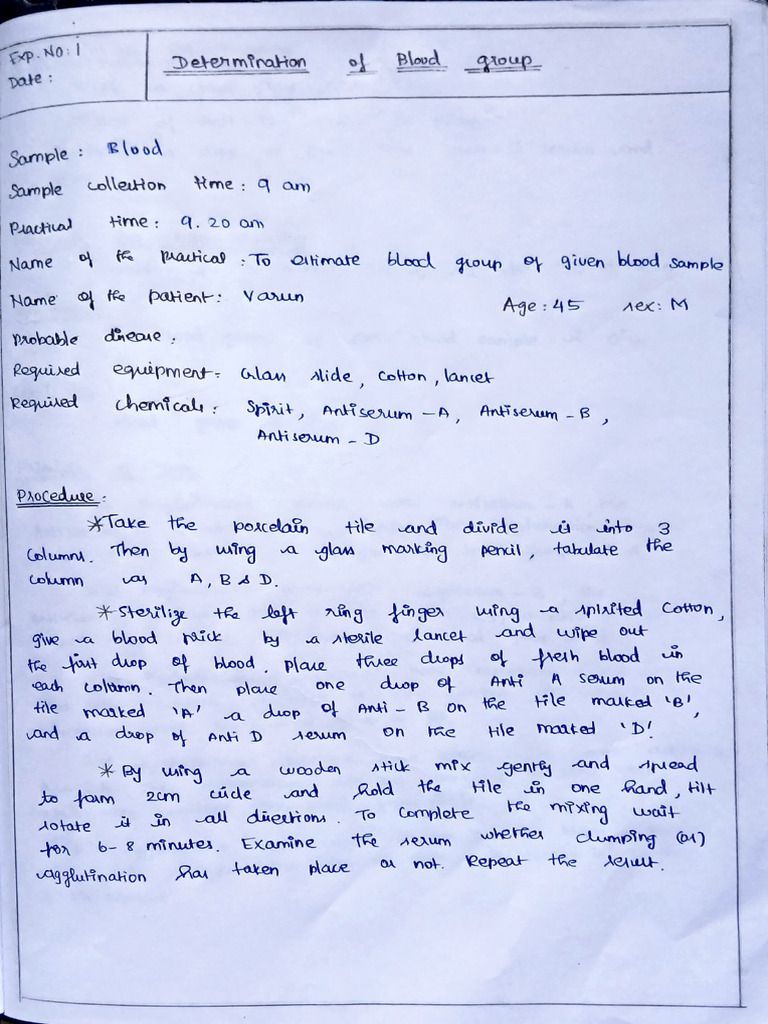 Exp. No: 1
Date:
Determination of Blood group
Sample: Blood
Sample collection time: 9 am
Practical time: 9.20 am
Name of the practical: To estimate blood group of given blood sample
Name of the patient: Varun Age: 45 sex: M
Probable disease:
Required equipment: Glass slide, cotton, lancet
Required chemicals: Spirit, Antiserum-A, Antiserum-B,
Antiserum-D
Procedure:
*Take the porcelain tile and divide is into 3
columns. Then by using a glass marking pencil, tabulate the
column as A, B & D.
*Sterilize the left ring finger using a spirited cotton,
give a blood prick by a sterile lancet and wipe out
the first drop of blood. place three drops of fresh blood in
each column. Then place one drop of Anti A serum on the
tile marked 'A' a drop of Anti-B on the tile marked 'B',
and a drop of Anti D serum on the tile marked 'D'.
*By using a wooden stick mix gently and spread
to form 2cm circle and hold the tile in one hand, tilt
rotate it in all directions. To complete the mixing wait
for 6-8 minutes. Examine the serum whether clumping (or)
agglutination has taken place or not. Repeat the result.